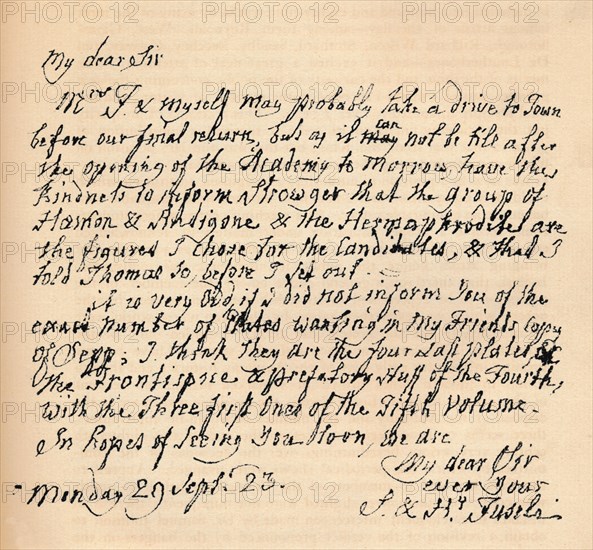 My dear Sir
Mrs F. & myself may probably take a drive to Town
before our final return, but as it may can not be till after
the opening of the Academy to Morrow, have the
Kindness to inform Strowger that the group of
Hæmon & Antigone & the Hermaphrodite are
the figures I chose for the Candidates, & that I
told Thomas so, before I set out.
it is very odd, if I did not inform You of the
exact number of Plates wanting in My Friends Copy
of Sepp; I think they are the four Last plates of
the Frontispice & prefatory stuff of the Fourth,
with the Three first Ones of the Fifth volume.
In hopes of Seeing You Soon, we are
My dear Sir
ever Yours
S. & Hy Fuseli
Monday 29 Sept. 23.